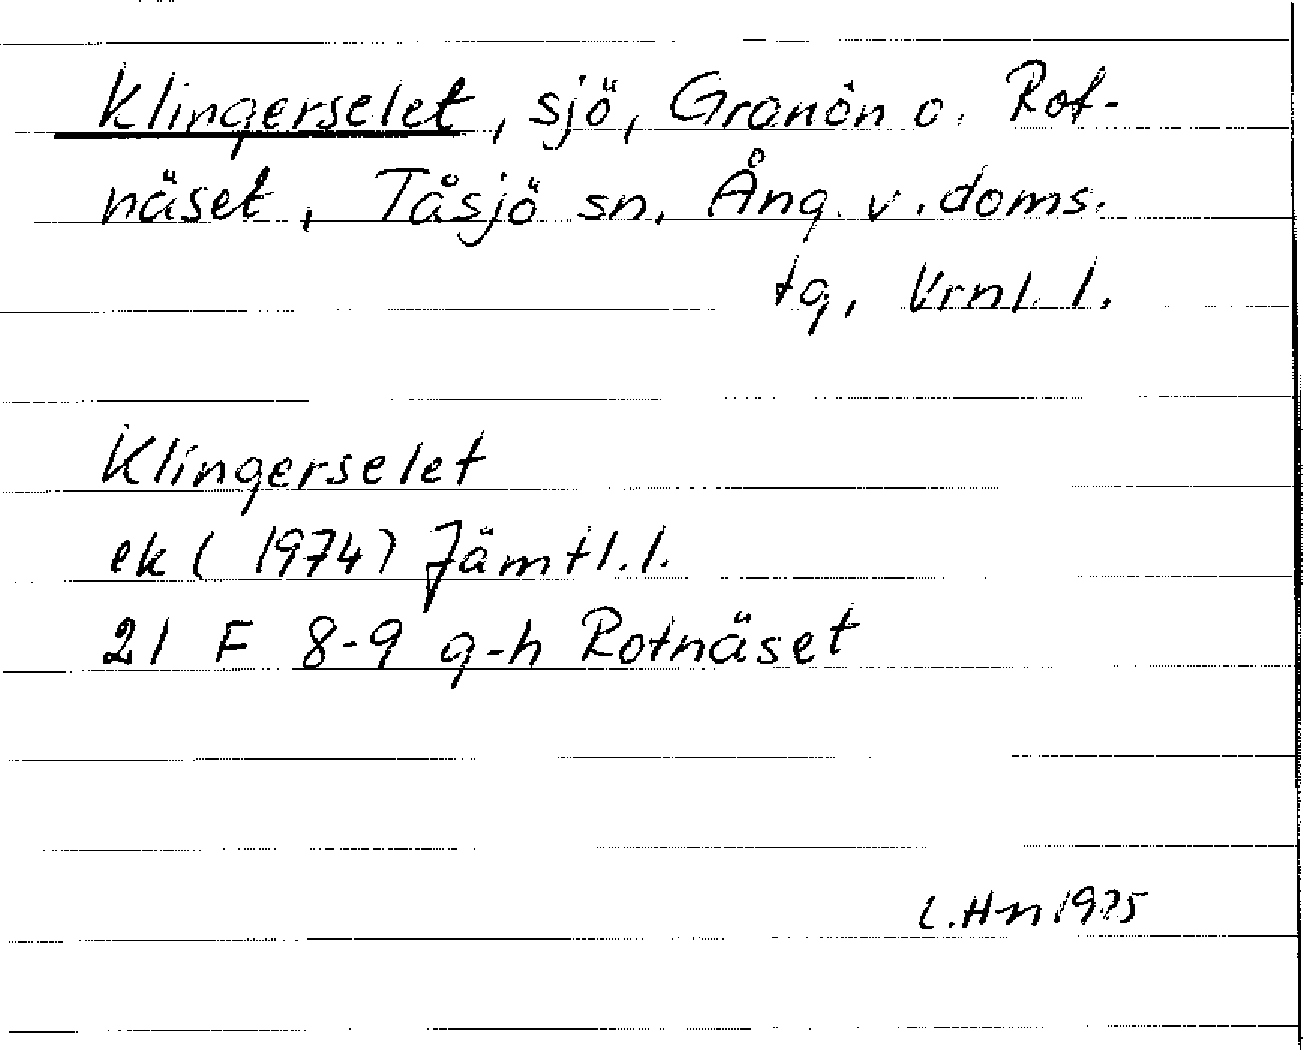 Klingerselet, sjö, Granön o. Rot-
näset, Tåsjö sn, Ång. v. doms.
tg, Vrnl. l.
Klingerselet
ek (1974) Jämtl. l.
21 F 8-9 g-h Rotnäset
L.Hn 1975